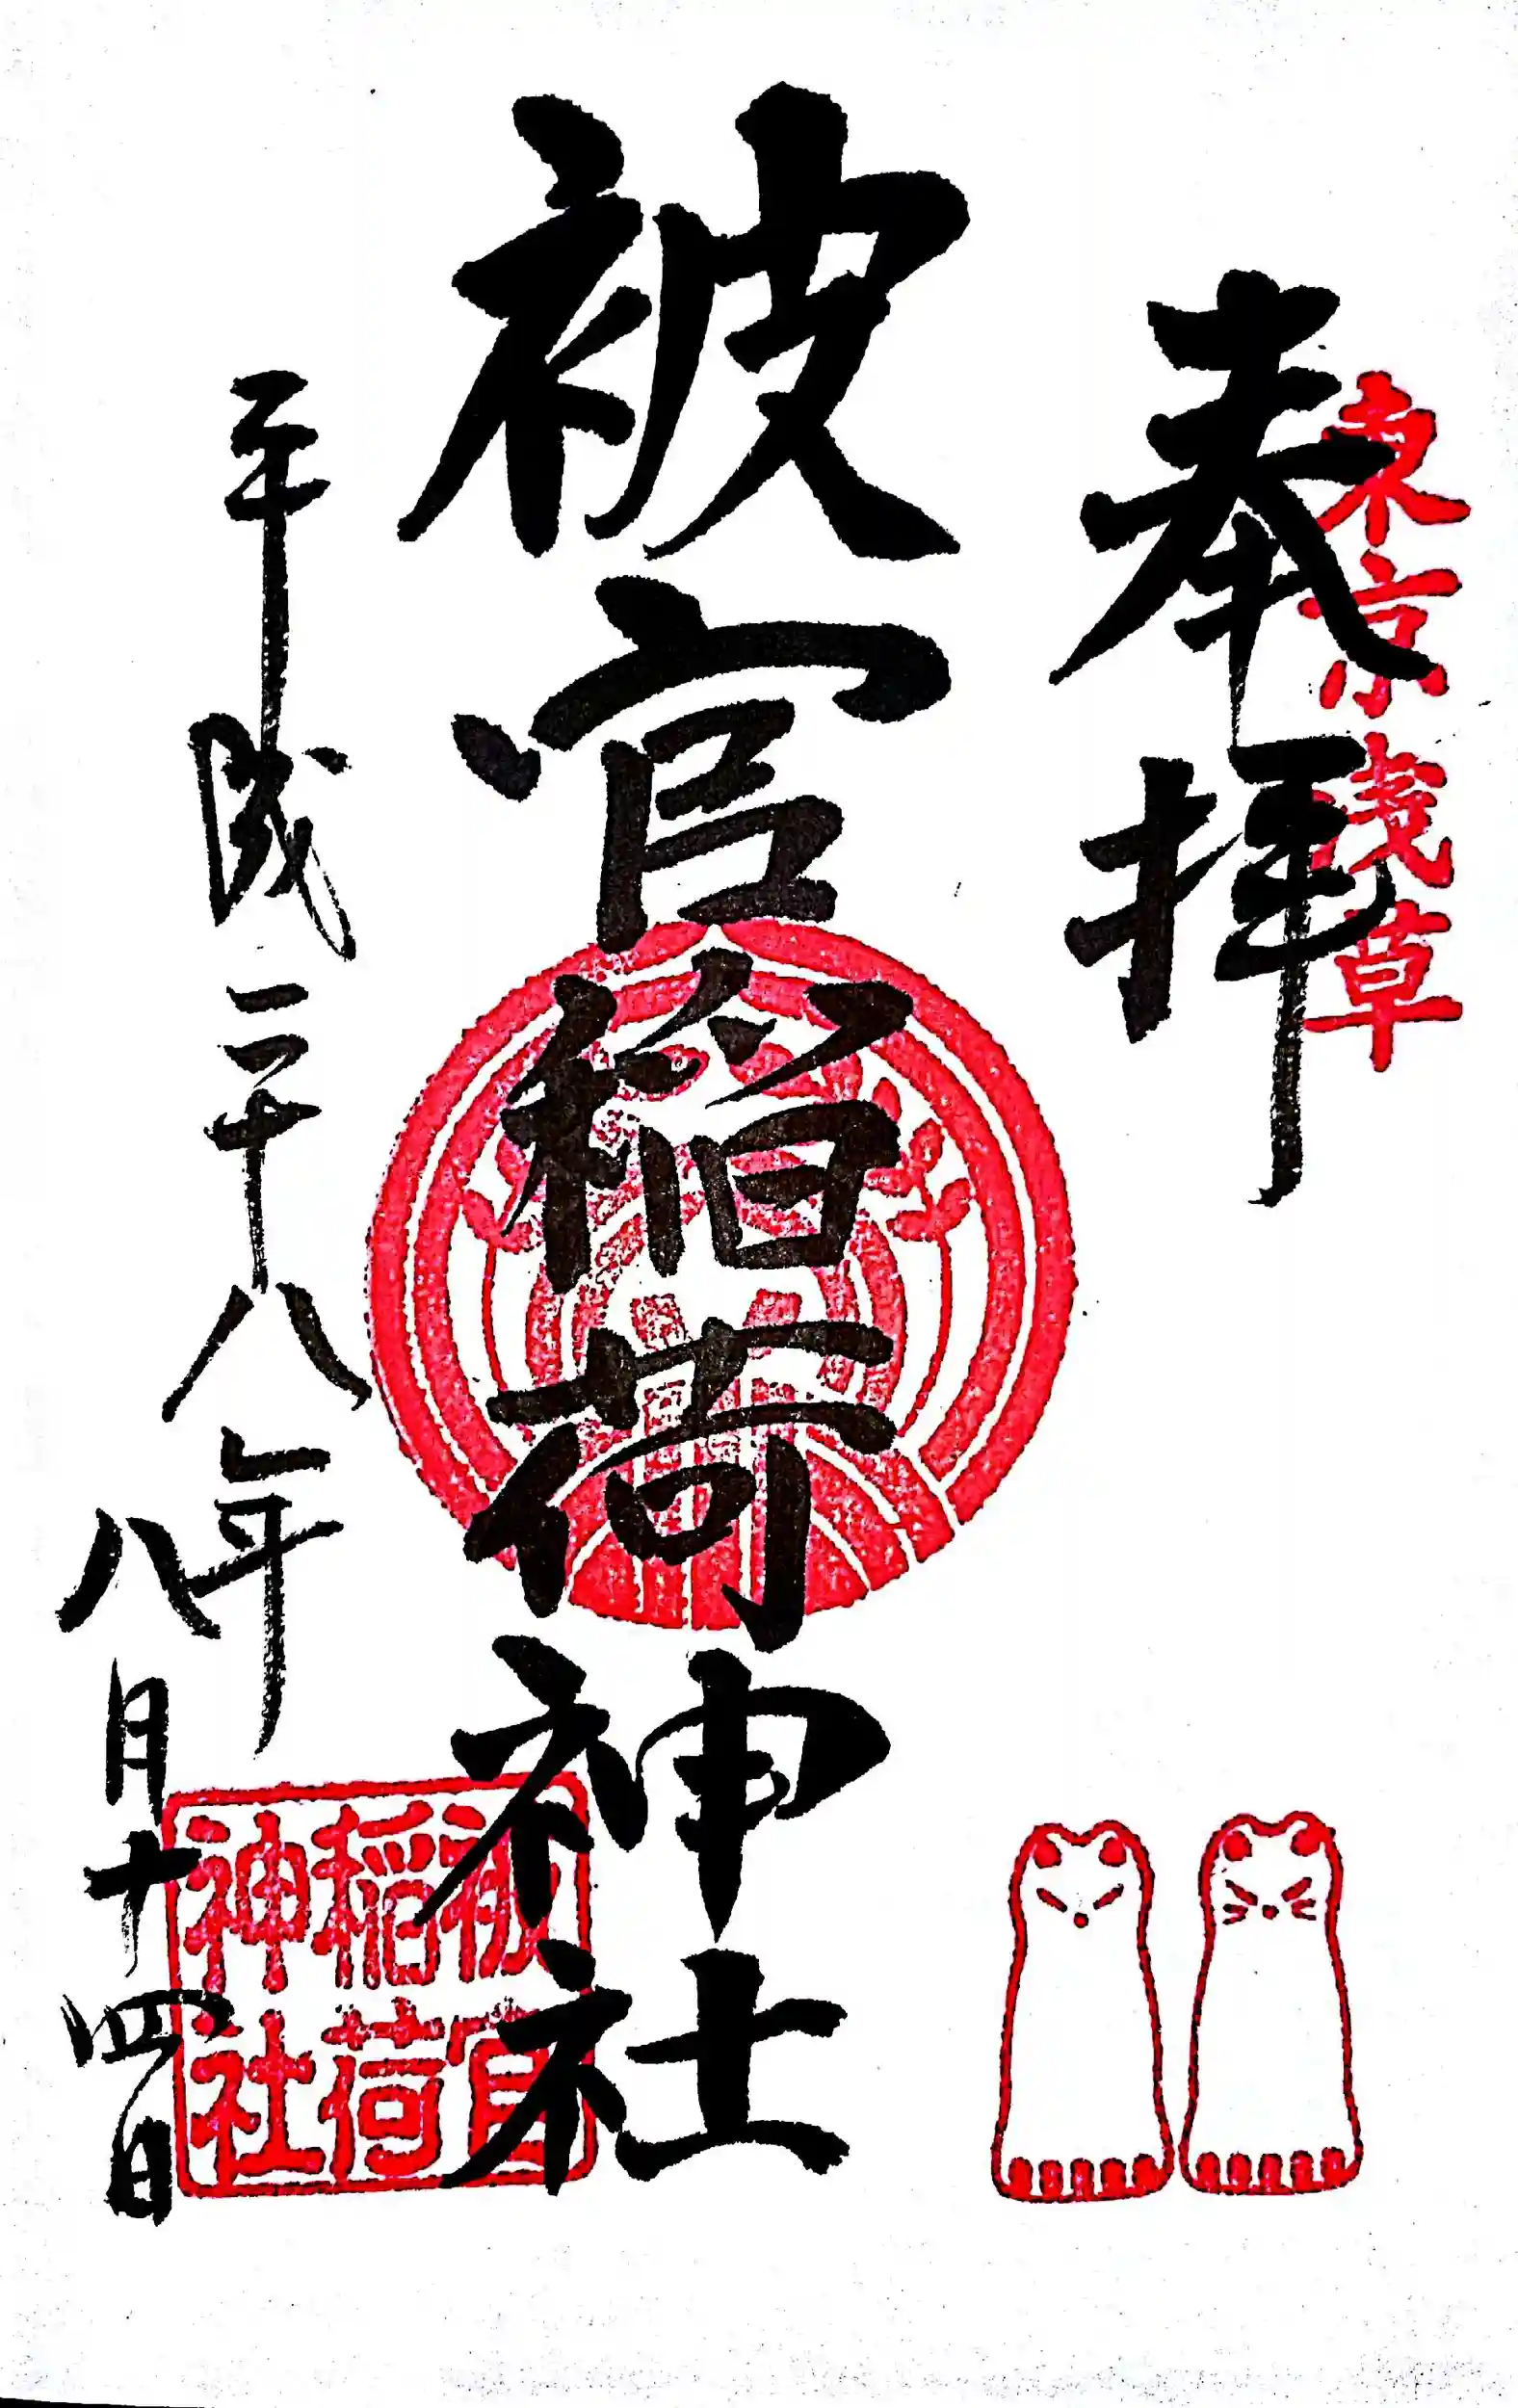 東京淺草
奉拝
被官稲荷神社
平成二十八年
八月十四日
被官
稲荷
神社